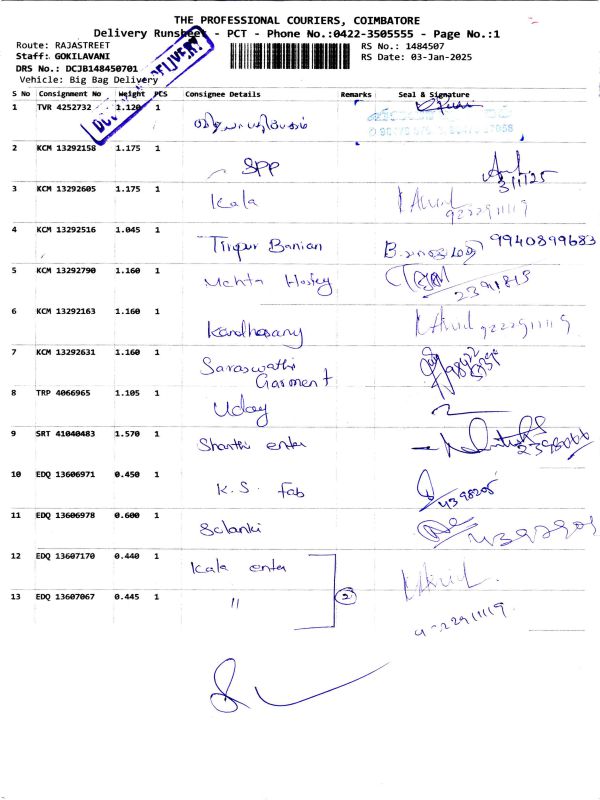 THE PROFESSIONAL COURIERS, COIMBATORE
Delivery Runsheet - PCT - Phone No.:0422-3505555 - Page No.:1
Route: RAJASTREET RS No.: 1484507
Staff: GOKILAVANI RS Date: 03-Jan-2025
DRS No.: DCJB148450701
Vehicle: Big Bag Delivery
DELIVERY
S No Consignment No Weight PCS Consignee Details Remarks Seal & Signature
1 TVR 4252732 1.120 1
2 KCM 13292158 1.175 1 SPP 3/1/25
3 KCM 13292605 1.175 1 Kala 9222911119
4 KCM 13292516 1.045 1 Tirpur Banian 9940899683
5 KCM 13292790 1.160 1 Mehta Hosiey
6 KCM 13292163 1.160 1 Kandhasamy 9222911119
7 KCM 13292631 1.160 1 Saraswathi
Garment
8 TRP 4066965 1.105 1 Uday
9 SRT 41040483 1.570 1 Shanthi enter 2398066
10 EDQ 13606971 0.450 1 K.S. fab 4398205
11 EDQ 13606978 0.600 1 Solanki
12 EDQ 13607170 0.440 1 Kala enter
13 EDQ 13607067 0.445 1 " 2